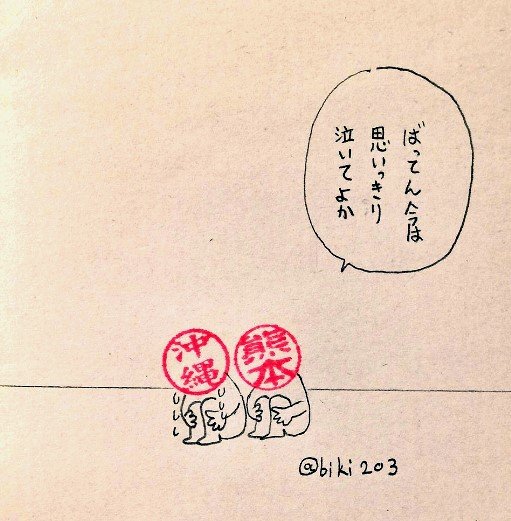 ばってん今は
思いっきり
泣いてよか
沖縄
熊本
@biki203